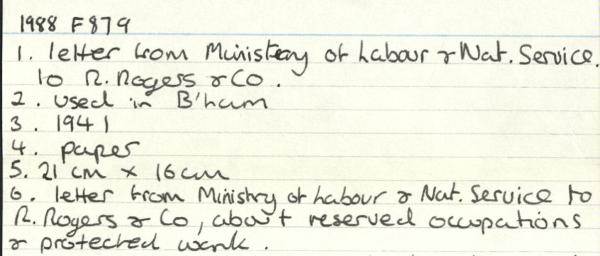 1988 F879
1. letter from Ministry of Labour & Nat. Service.
to R. Rogers & Co.
2. used in B'ham
3. 1941
4. paper
5. 21 cm x 16cm
6. letter from Ministry of Labour & Nat. Service to
R. Rogers & Co, about reserved occupations
& protected work.